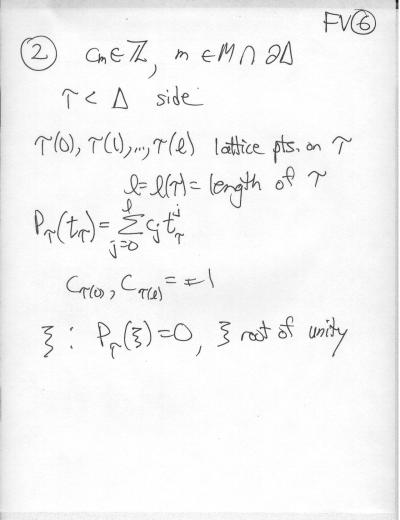 FV⑥
② cₘ∈ℤ, m ∈ M∩∂Δ
τ < Δ side
τ(0), τ(1),..., τ(l) lattice pts. on τ
l = l(τ) = length of τ
P_τ(t_τ) = ∑_{j=0}^{l} c_j t_τ^j
c_{τ(0)}, c_{τ(l)} = ±1
ξ : P_τ(ξ)=0, ξ root of unity